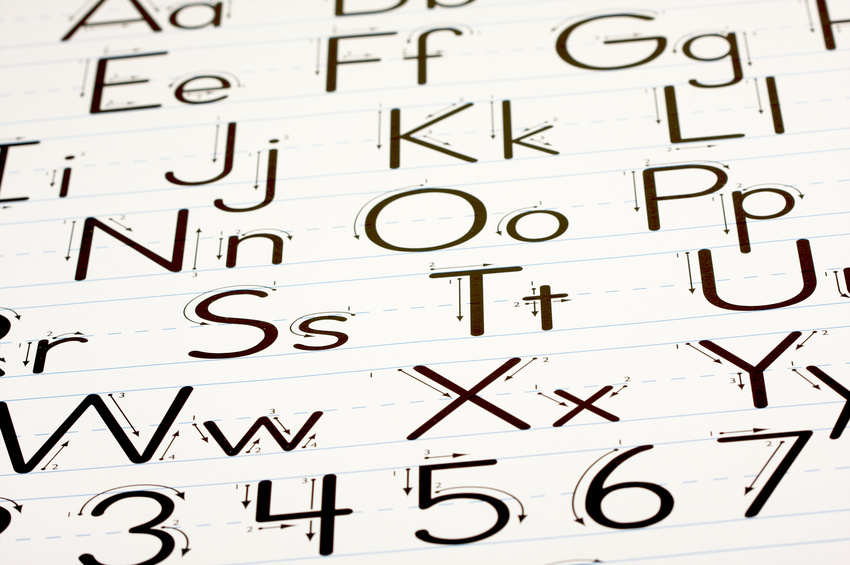 Aa Bb
Ee Ff Gg
Ii Jj Kk Ll
Nn Oo Pp
r Ss Tt U
Ww Xx Y
3 4 5 6 7